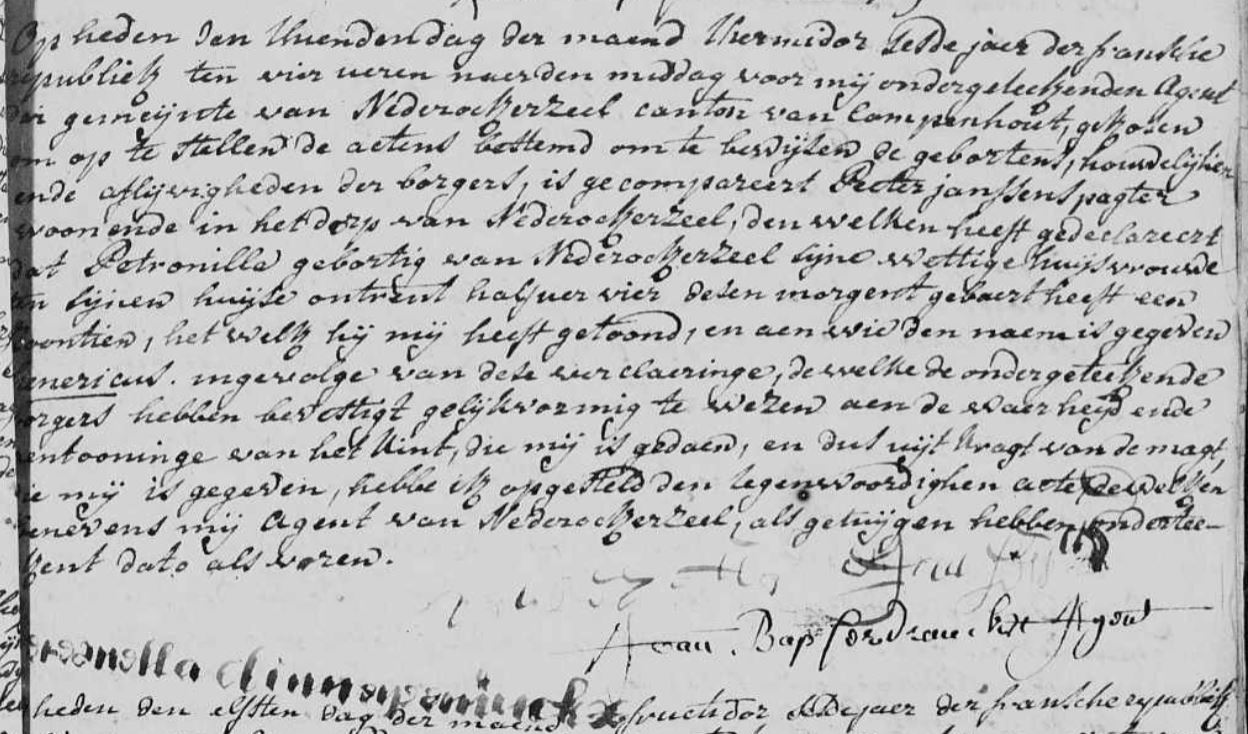 Op heden den thienden dag der maend thermidor sesde jaer der fransche
republiek ten vier ueren naer den middag voor mij ondergeteekenden Agent
der gemeijnte van Nederockerzeel canton van Campenhout, gekosen
om op te stellen de actens bestemd om te bewijsen de gebortens, houwelijken
ende aflijvigheden der borgers, is gecompareert Peeter janssens pagter
woonende in het dorp van Nederockerzeel, den welken heeft gedeclareert
dat Petronilla gebortig van Nederockerzeel sijne wettige huijsvrouwe
in sijnen huijse ontrent half uer vier desen morgent gebaert heeft een
soontien, het welk hij mij heeft getoond, en aen wie den naem is gegeven
henericus. ingevolge van dese verclaeringe, de welke de ondergeteekende
borgers hebben bevestigt gelijkvormig te wezen aen de waerheijd ende
vertooninge van het kint, die mij is gedaen, en dus uijt kragt van de magt,
die mij is gegeven, hebbe ik opgesteld den tegenwoordighen acte, dewelken
benevens mij Agent van Nederockerzeel, als getuijgen hebben ondertee-
kent dato als voren.
Joan Bap Agent
heden den elfsten dag der maend fructidor sesde jaer der fransche republiek